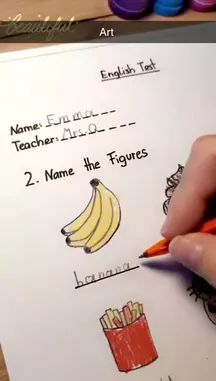 Beautiful
Art
English Test
Name: Emma
Teacher: Mrs.
2. Name the Figures
banana